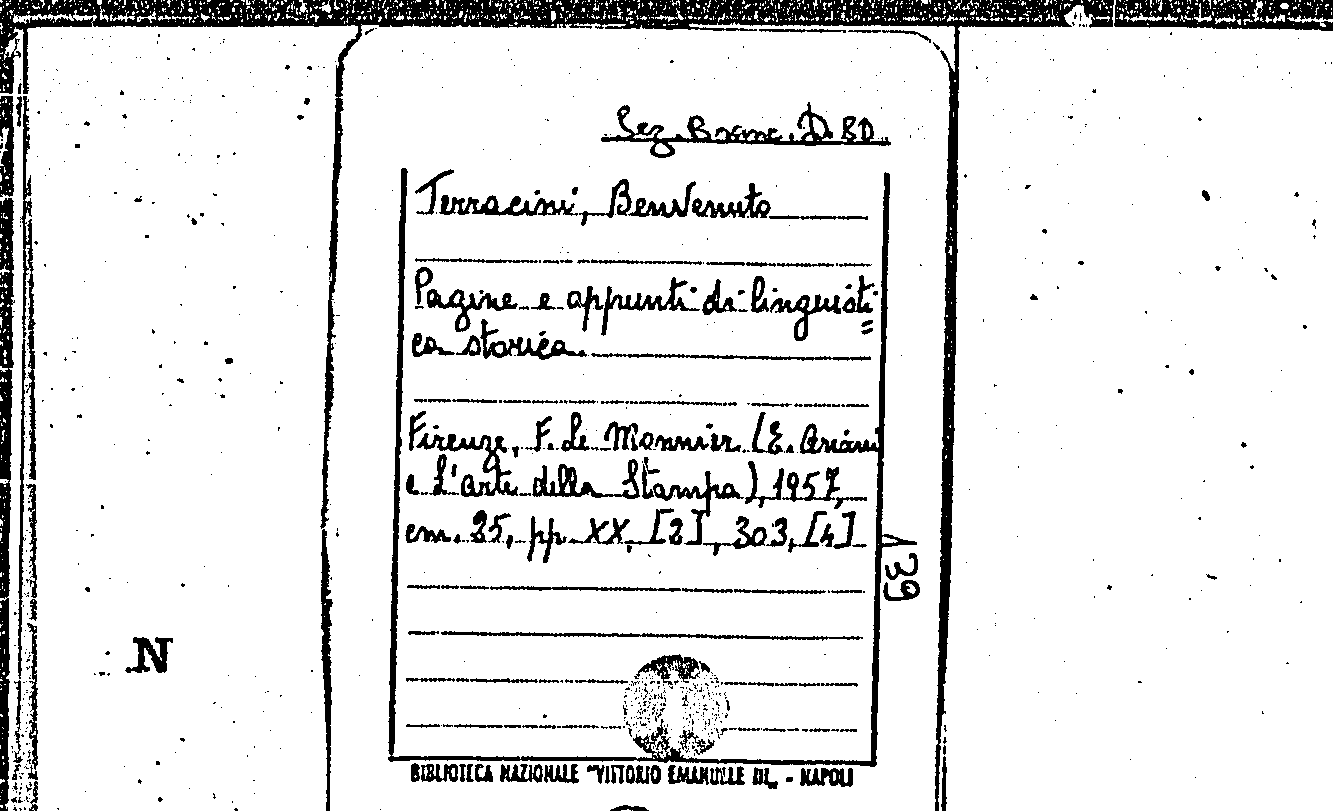 Sez. Branc. D. BD
Terracini, Benvenuto
Pagine e appunti di linguisti=
ca storica.
Firenze, F. Le Monnier (E. Ariani
e L'arte della Stampa), 1957,
cm. 25, pp. XX, [2], 303, [4]
139
N
BIBLIOTECA NAZIONALE "VITTORIO EMANUELE III„ - NAPOLI